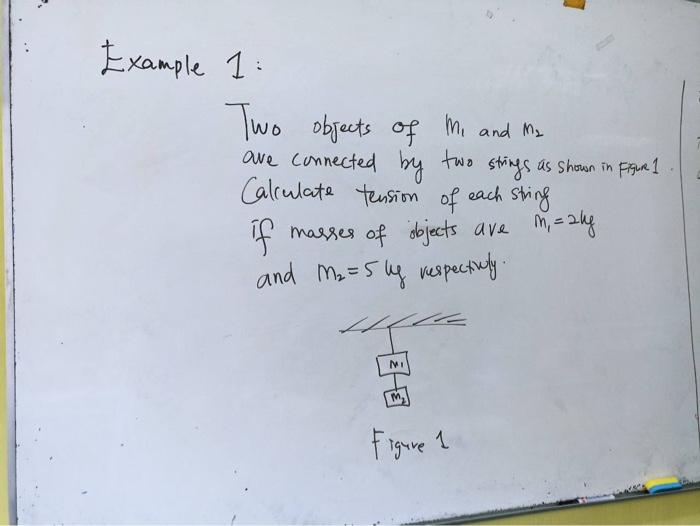 Example 1:
Two objects of m1 and m2
are connected by two strings as shown in Figure 1.
Calculate tension of each string
if masses of objects are m1 = 2 kg
and m2 = 5 kg respectively.
M1
M2
Figure 1